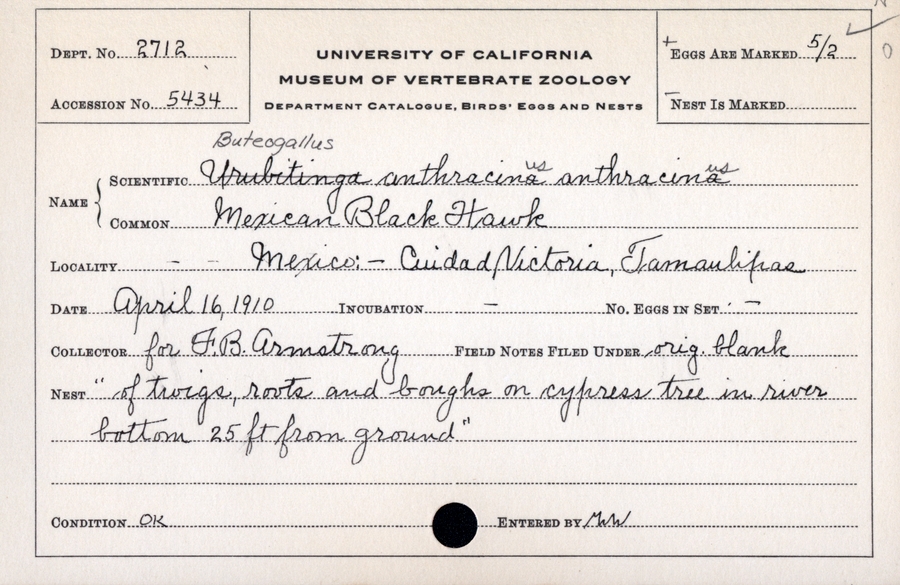 Dept. No. 2712
Accession No. 5434
UNIVERSITY OF CALIFORNIA
MUSEUM OF VERTEBRATE ZOOLOGY
Department Catalogue, Birds' Eggs and Nests
+ Eggs Are Marked 5/2
− Nest Is Marked
0
Buteogallus
Name
Scientific Urubitinga anthracinaus anthracinaus
Common Mexican Black Hawk
Locality – – Mexico:– Cuidad Victoria, Tamaulipas
Date April 16, 1910 Incubation – No. Eggs in Set –
Collector for F.B. Armstrong Field Notes Filed Under orig. blank
Nest "of twigs, roots and boughs on cypress tree in river
bottom 25 ft from ground"
Condition OK Entered by